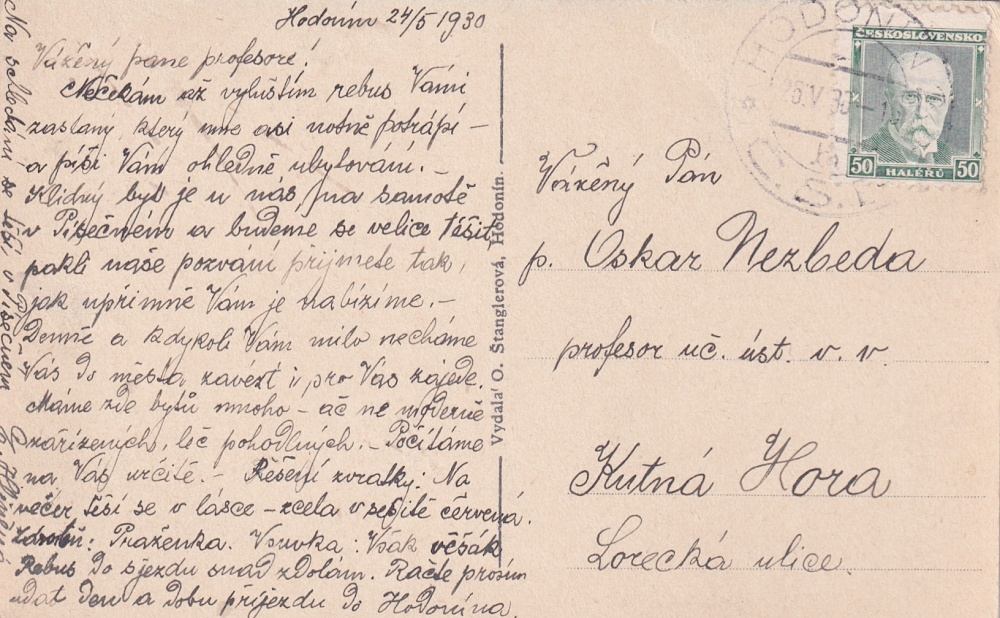 Hodonín 24/5 1930
Vážený pane profesore!
Nečekám až vyluštím rebus Vámi
zaslaný, který mne asi notně potrápí –
a píši Vám ohledně ubytování. –
Klidný byt je u nás, na samotě
v Písečném a budeme se velice těšit
pakli naše pozvání přijmete tak,
jak upřimně Vám je nabízíme. –
Denně a kdykoli Vám milo necháme
Vás do města zavézt i pro Vás zajede.
Máme zde bytů mnoho – ač ne moderně
zařízených, leč pohodlných. – Počítáme
na Vás určitě. – Řešení zvratky: Na
večer těší se v lásce – zcela v sešitě červená.
Zdrobň: Praženka. Vsuvka: Však věšák
Rebus do sjezdu snad zdolám. Račte prosím
udat den a dobu příjezdu do Hodonína.
Na shledání se těší, v Písečném
Vydala O. Štanglerová, Hodonín.
HODONÍN
26.V 30
ČESKOSLOVENSKO
50 HALÉŘŮ 50
Vážený Pán
p. Oskar Nezbeda
profesor uč. úst. v. v
Kutná Hora
Lorecká ulice.